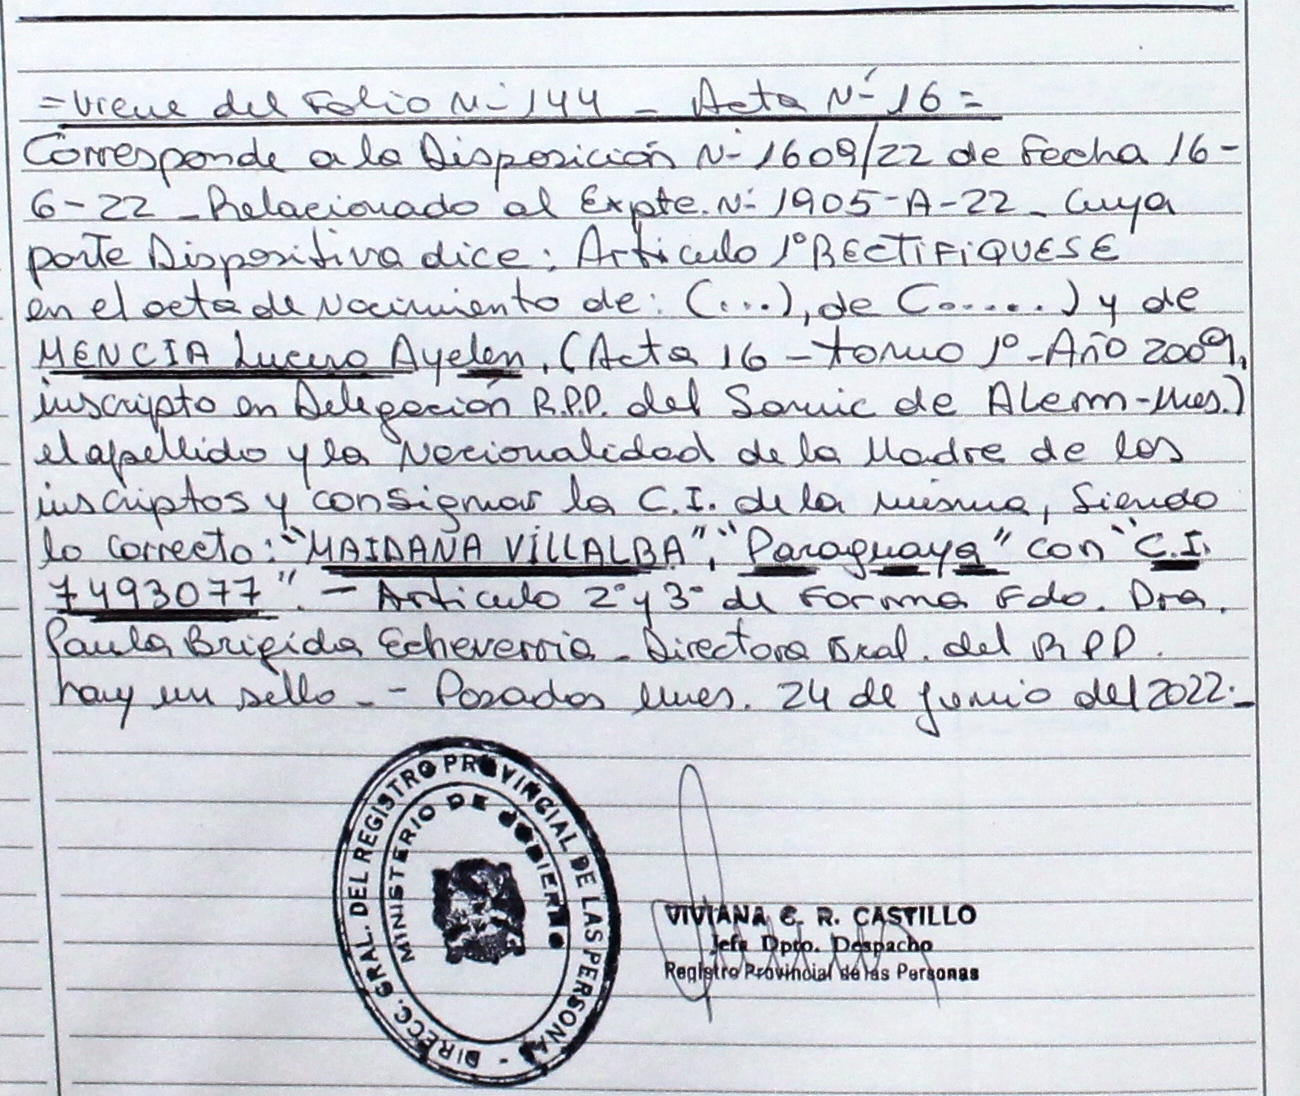 = Viene del Folio Nº 144 - Acta Nº 16 =
Corresponde a la Disposición Nº 1609/22 de Fecha 16-
6-22 - Relacionado al Expte. Nº 1905-A-22 - Cuya
parte Dispositiva dice: Articulo 1º RECTIFIQUESE
en el acta de Nacimiento de: (...), de C.....) y de
MENCIA Lucero Ayelen, (Acta 16 - tomo 1º - Año 2009,
inscripto en Delegación R.P.P. del Samic de Alem-Mnes.)
el apellido y la Nacionalidad de la Madre de los
inscriptos y consignar la C.I. de la misma, Siendo
lo correcto: "MAIDANA VILLALBA", "Paraguaya" con "C.I.
7493077". - Articulo 2º y 3º de Forma Fdo. Dra.
Paula Brigida Echeverria - Directora Gral. del R P P.
hay un sello - - Posadas Mnes. 24 de Junio del 2022.-
DIRECC. GRAL. DEL REGISTRO PROVINCIAL DE LAS PERSONAS -
MINISTERIO DE GOBIERNO
VIVIANA C. R. CASTILLO
Jefe Dpto. Despacho
Registro Provincial de las Personas